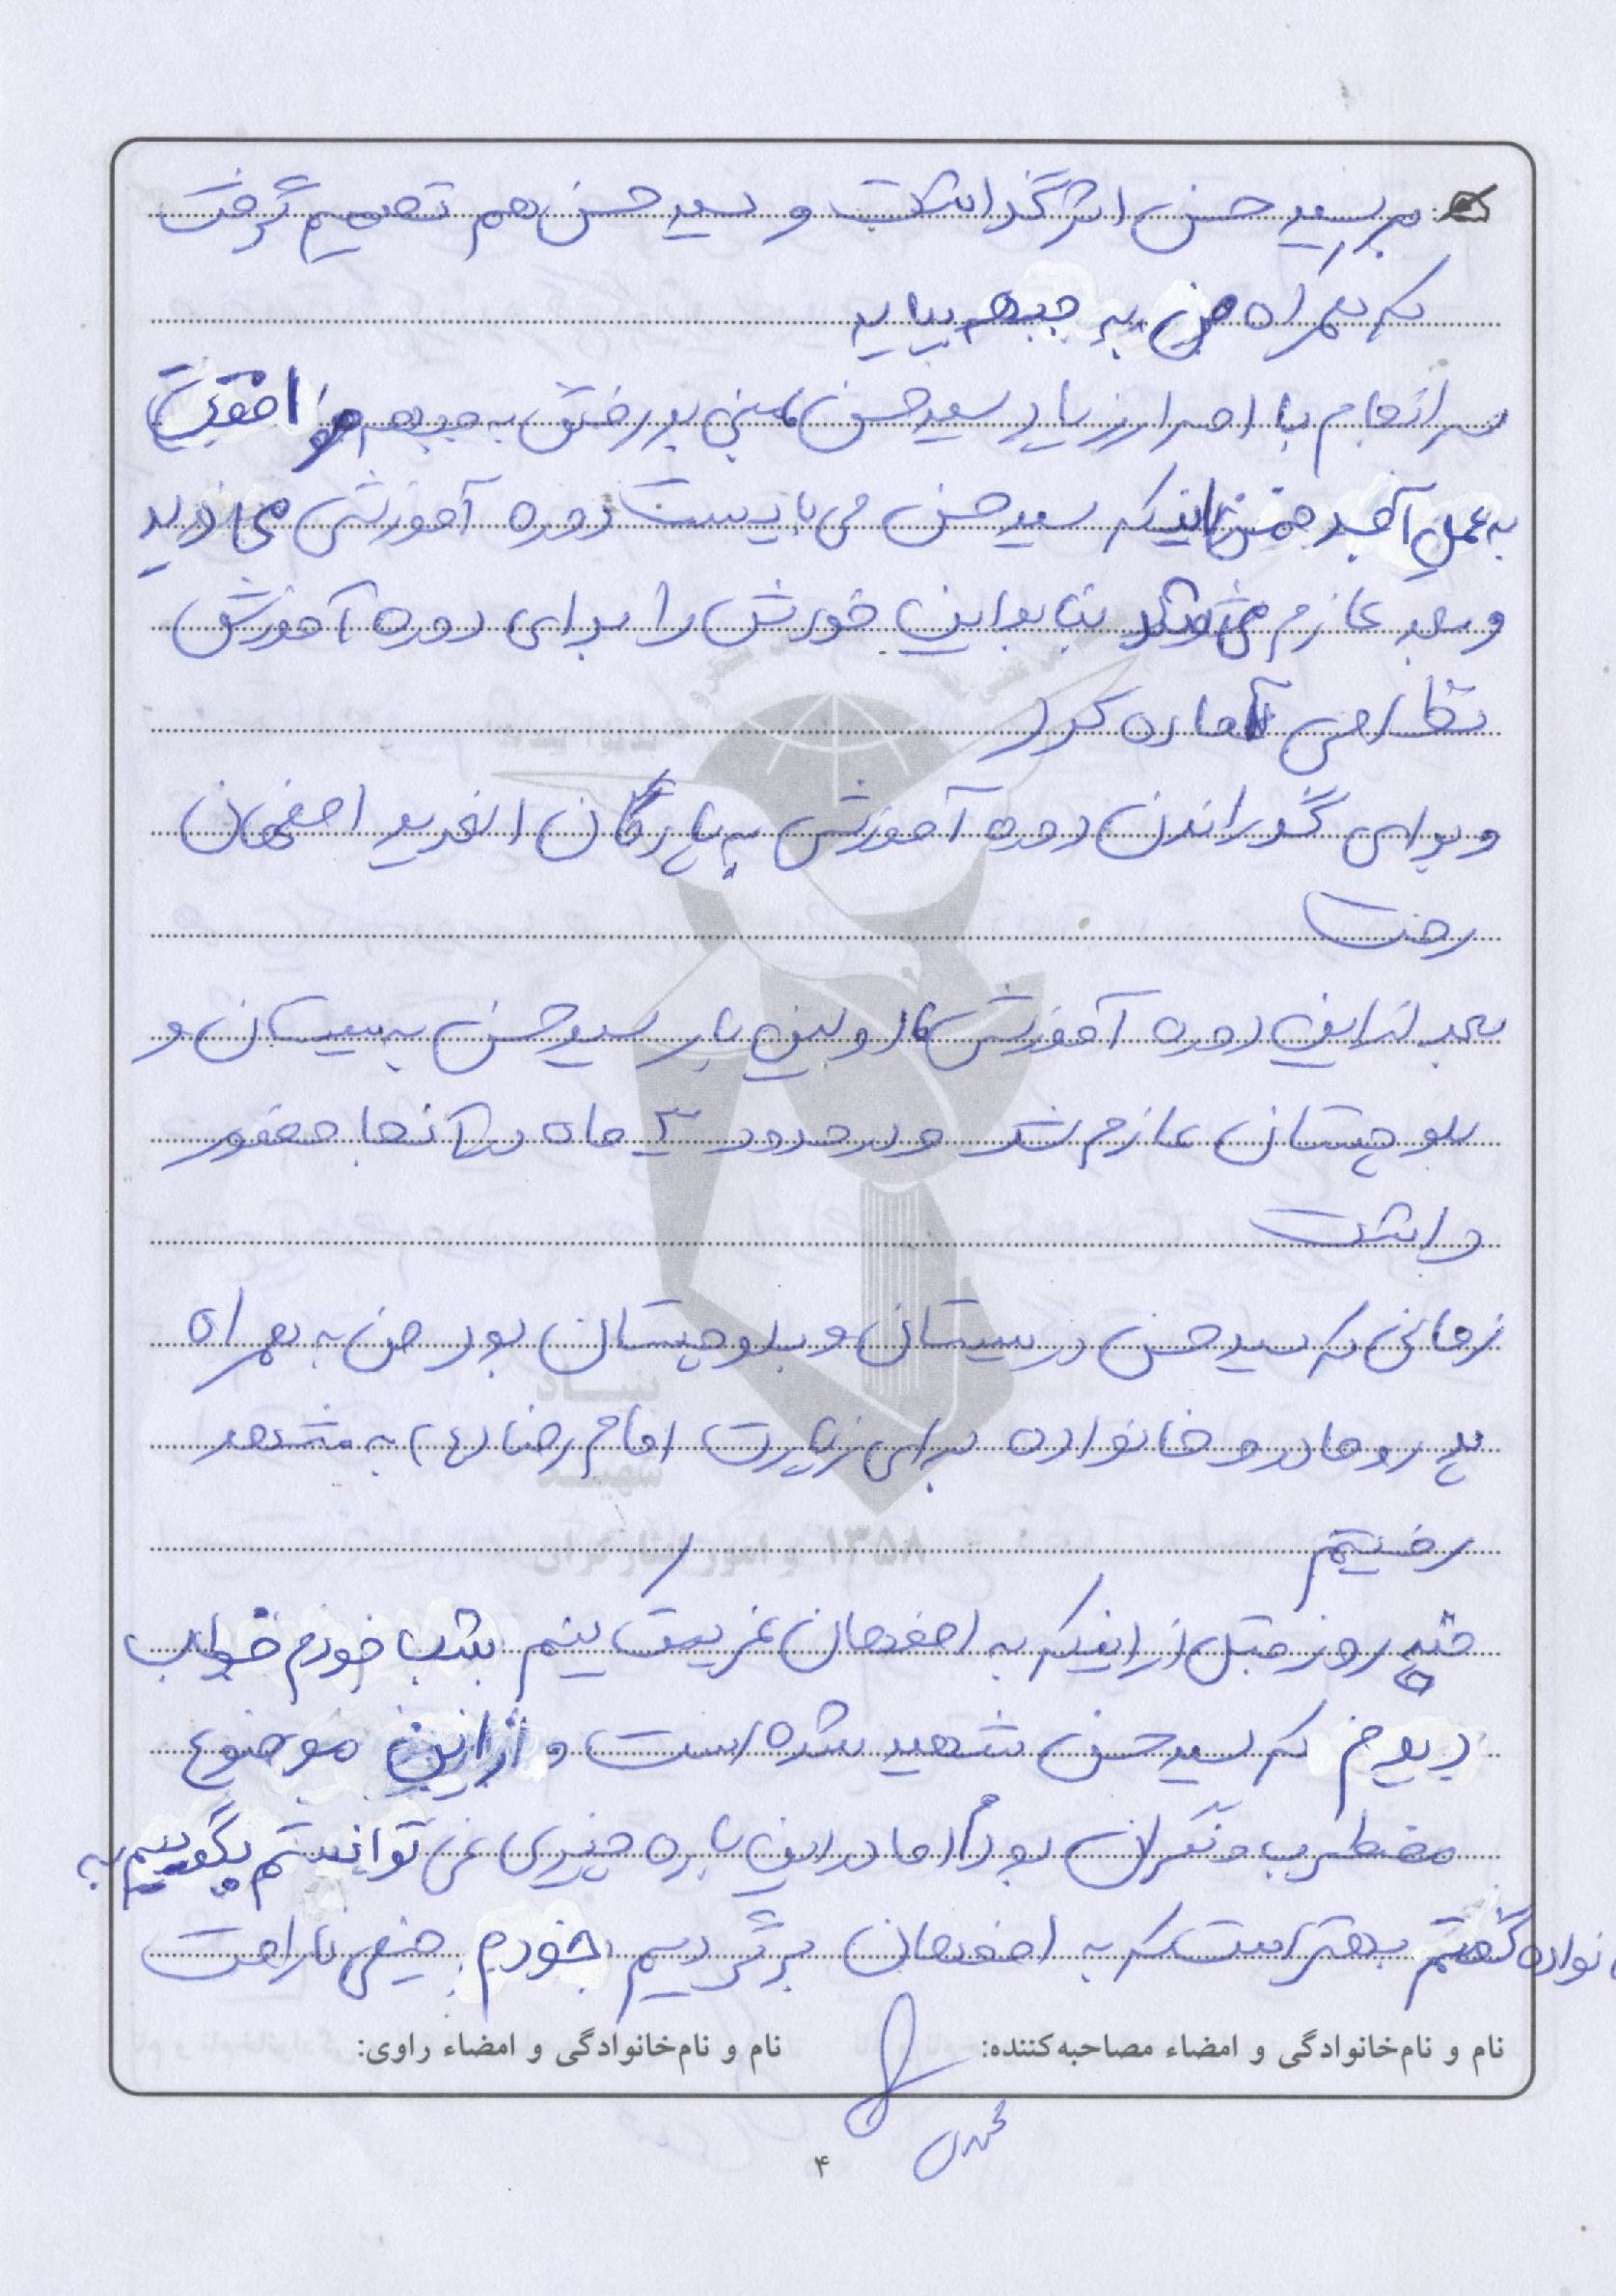 بر سید حسن اثر گذاشت و سید حسن هم تصمیم گرفت
که همراه من به جبهه بیاید
سرانجام با اصرار زیاد سید حسن مبنی بر رفتن به جبهه موافقت
به عمل آمد ضمن اینکه سید حسن می بایست دوره آموزشی می دید
و بعد عازم می شد بنابراین خودش را برای دوره آموزش
نظامی آماده کرد
و برای گذراندن دوره آموزش به پادگان الغدیر اصفهان
رفت
بعد از این دوره آموزش اولین بار سید حسن به سیستان و
بلوچستان عازم شد و در حدود ۳ ماه در آنجا حضور
داشت
زمانی که سید حسن در سیستان و بلوچستان بود من به همراه
پدر و مادر و خانواده برای زیارت امام رضا (ع) به مشهد
رفتیم
چند روز قبل از اینکه به اصفهان عزیمت کنیم شب خودم خواب
دیدم که سید حسن شهید شده است و از این موضوع
مضطرب و نگران بودم اما در این باره چیزی نمی توانستم بگویم به
خانواده گفتم بهتر است که به اصفهان برگردیم خودم خیلی ناراحت
نام و نام‌خانوادگی و امضاء مصاحبه‌کننده: نام و نام‌خانوادگی و امضاء راوی:
۴
بنیاد
شهید
و امور ایثارگران ۱۳۵۸